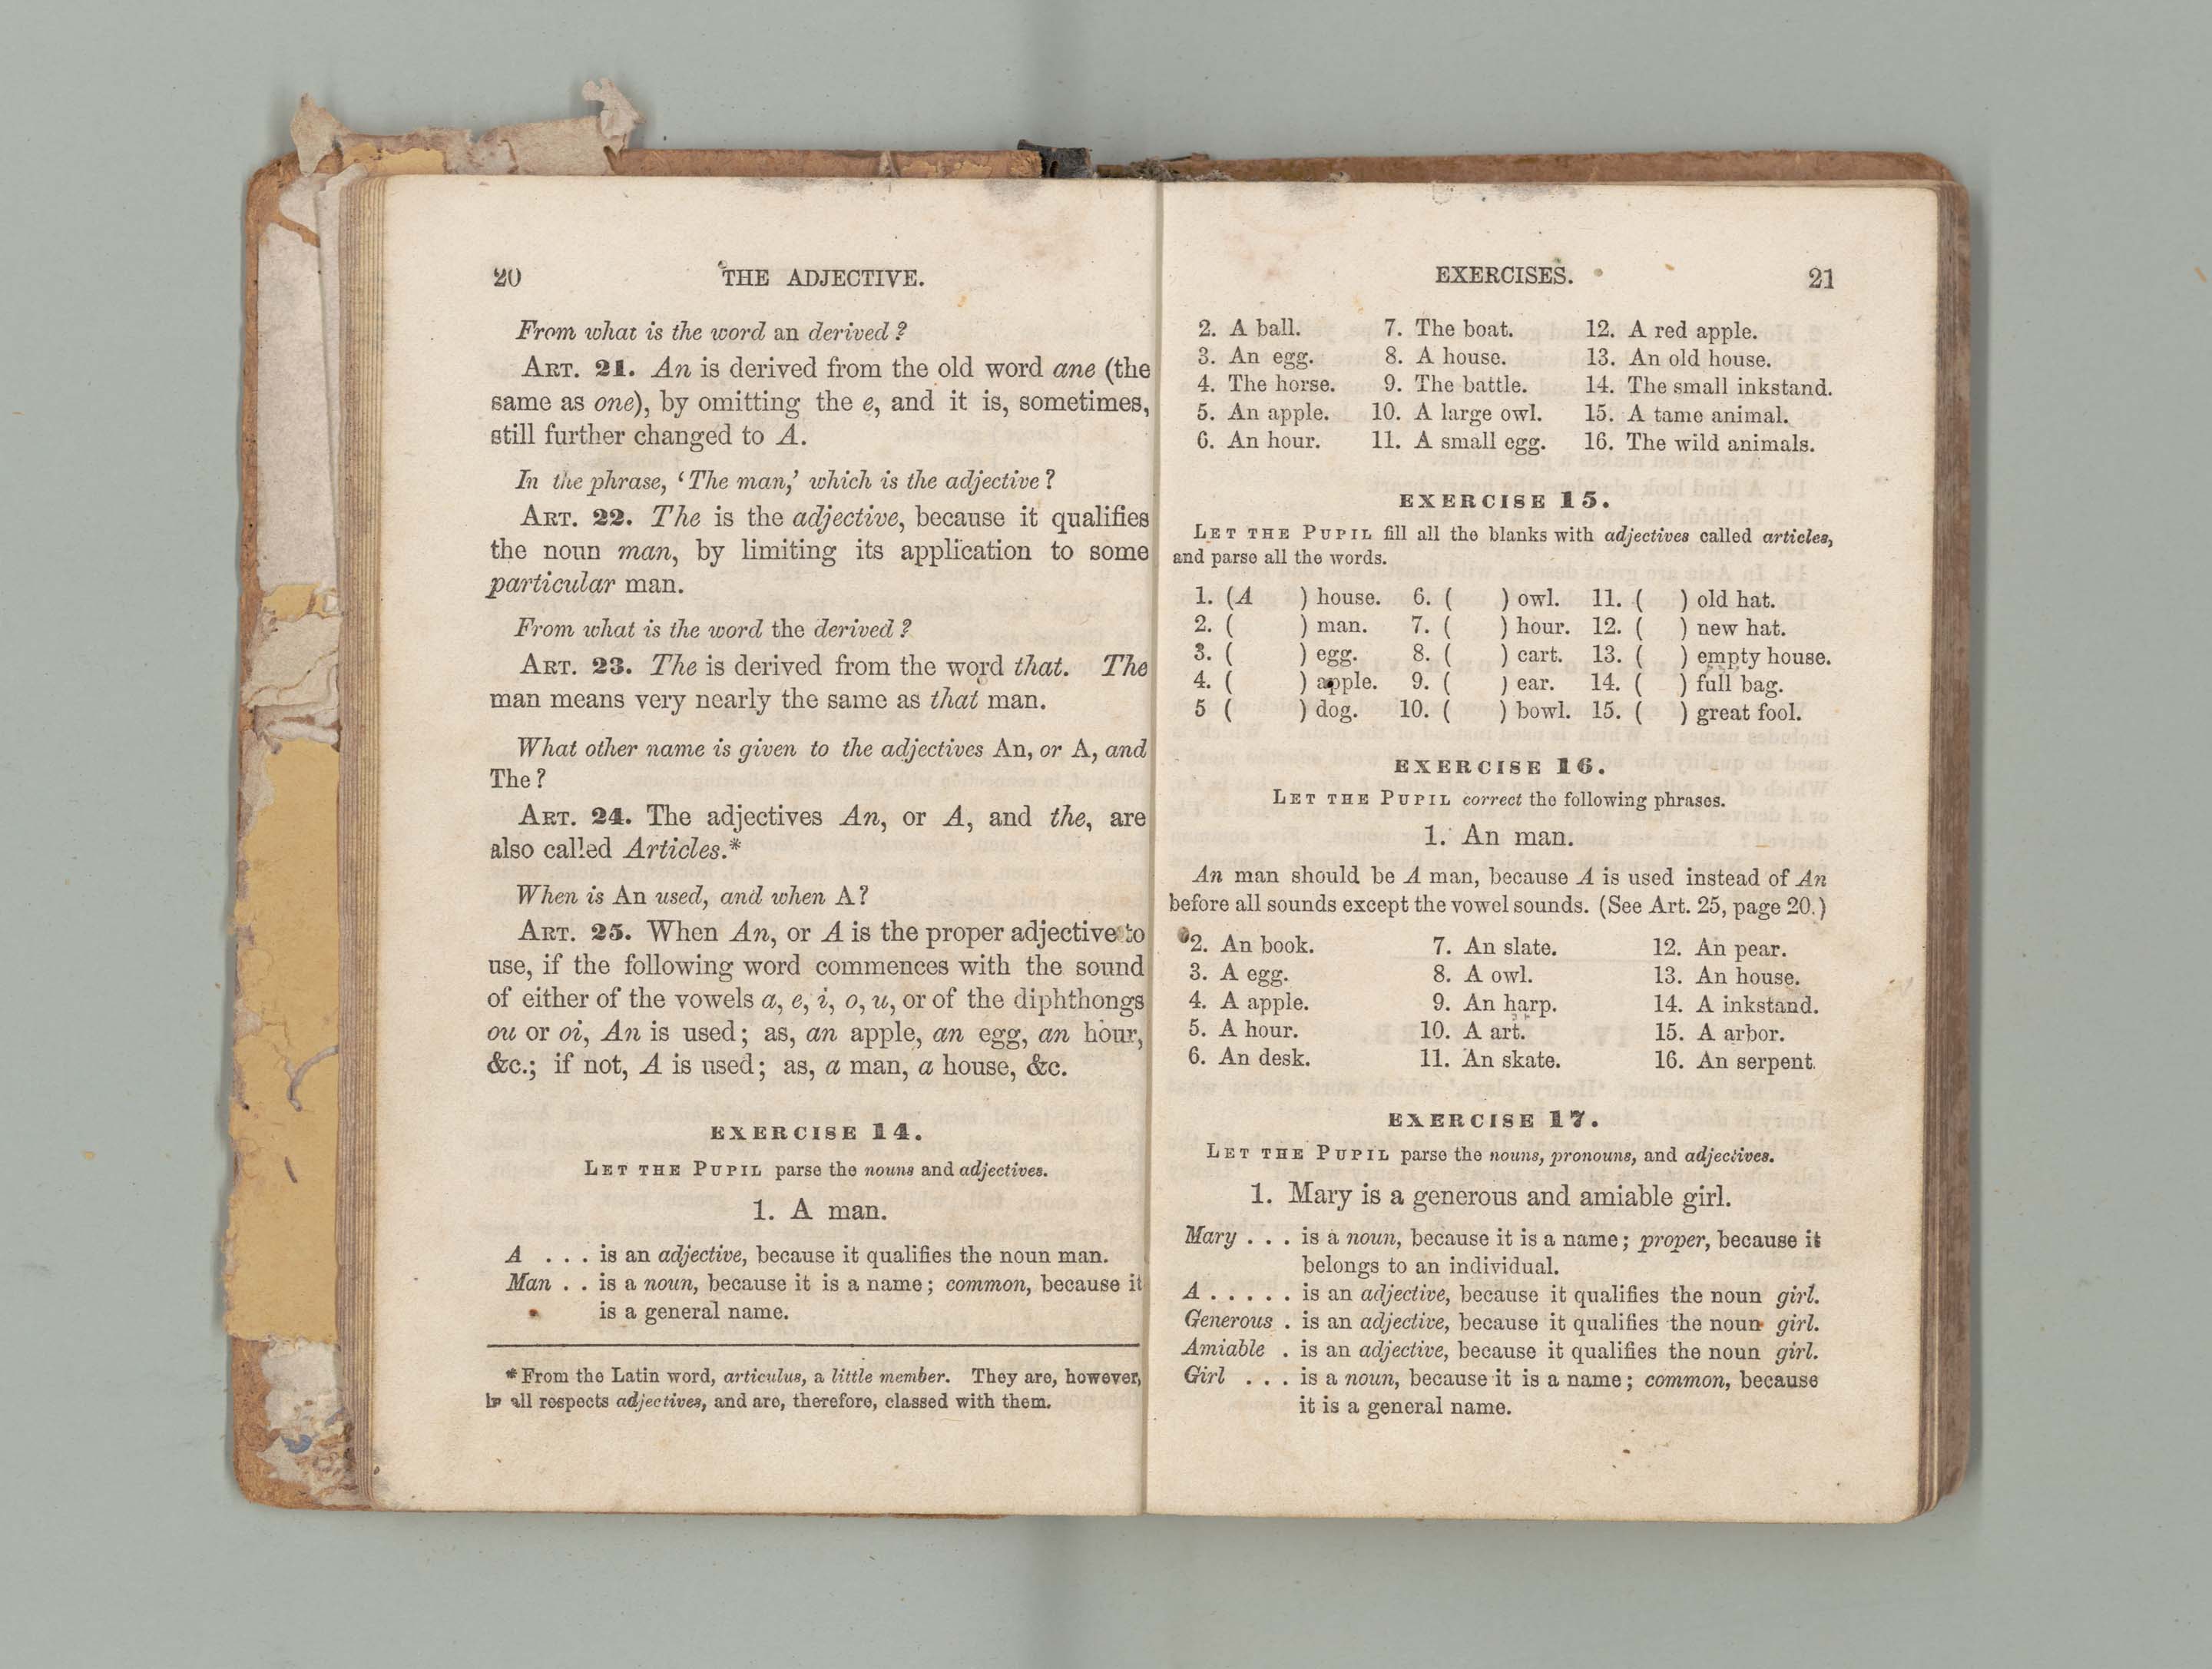 20 THE ADJECTIVE.
From what is the word an derived?
ART. 21. An is derived from the old word ane (the
same as one), by omitting the e, and it is, sometimes,
still further changed to A.
In the phrase, ‘The man,’ which is the adjective?
ART. 22. The is the adjective, because it qualifies
the noun man, by limiting its application to some
particular man.
From what is the word the derived?
ART. 23. The is derived from the word that. The
man means very nearly the same as that man.
What other name is given to the adjectives An, or A, and
The?
ART. 24. The adjectives An, or A, and the, are
also called Articles.*
When is An used, and when A?
ART. 25. When An, or A is the proper adjective to
use, if the following word commences with the sound
of either of the vowels a, e, i, o, u, or of the diphthongs
ou or oi, An is used; as, an apple, an egg, an hour,
&c.; if not, A is used; as, a man, a house, &c.
EXERCISE 14.
LET THE PUPIL parse the nouns and adjectives.
1. A man.
A . . . is an adjective, because it qualifies the noun man.
Man . . is a noun, because it is a name; common, because it
is a general name.
* From the Latin word, articulus, a little member. They are, however,
in all respects adjectives, and are, therefore, classed with them.
EXERCISES. 21
2. A ball. 7. The boat. 12. A red apple.
3. An egg. 8. A house. 13. An old house.
4. The horse. 9. The battle. 14. The small inkstand.
5. An apple. 10. A large owl. 15. A tame animal.
6. An hour. 11. A small egg. 16. The wild animals.
EXERCISE 15.
LET THE PUPIL fill all the blanks with adjectives called articles,
and parse all the words.
1. (A ) house. 6. ( ) owl. 11. ( ) old hat.
2. ( ) man. 7. ( ) hour. 12. ( ) new hat.
3. ( ) egg. 8. ( ) cart. 13. ( ) empty house.
4. ( ) apple. 9. ( ) ear. 14. ( ) full bag.
5 ( ) dog. 10. ( ) bowl. 15. ( ) great fool.
EXERCISE 16.
LET THE PUPIL correct the following phrases.
1. An man.
An man should be A man, because A is used instead of An
before all sounds except the vowel sounds. (See Art. 25, page 20.)
2. An book. 7. An slate. 12. An pear.
3. A egg. 8. A owl. 13. An house.
4. A apple. 9. An harp. 14. A inkstand.
5. A hour. 10. A art. 15. A arbor.
6. An desk. 11. An skate. 16. An serpent.
EXERCISE 17.
LET THE PUPIL parse the nouns, pronouns, and adjectives.
1. Mary is a generous and amiable girl.
Mary . . . is a noun, because it is a name; proper, because it
belongs to an individual.
A . . . . . is an adjective, because it qualifies the noun girl.
Generous . is an adjective, because it qualifies the noun girl.
Amiable . is an adjective, because it qualifies the noun girl.
Girl . . . is a noun, because it is a name; common, because
it is a general name.